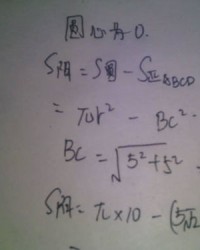 圆心为O.
S阴 = S圆 - S正ABCD
= πr² - BC².
BC = √5²+5²
S阴 = π×10 - (5√2